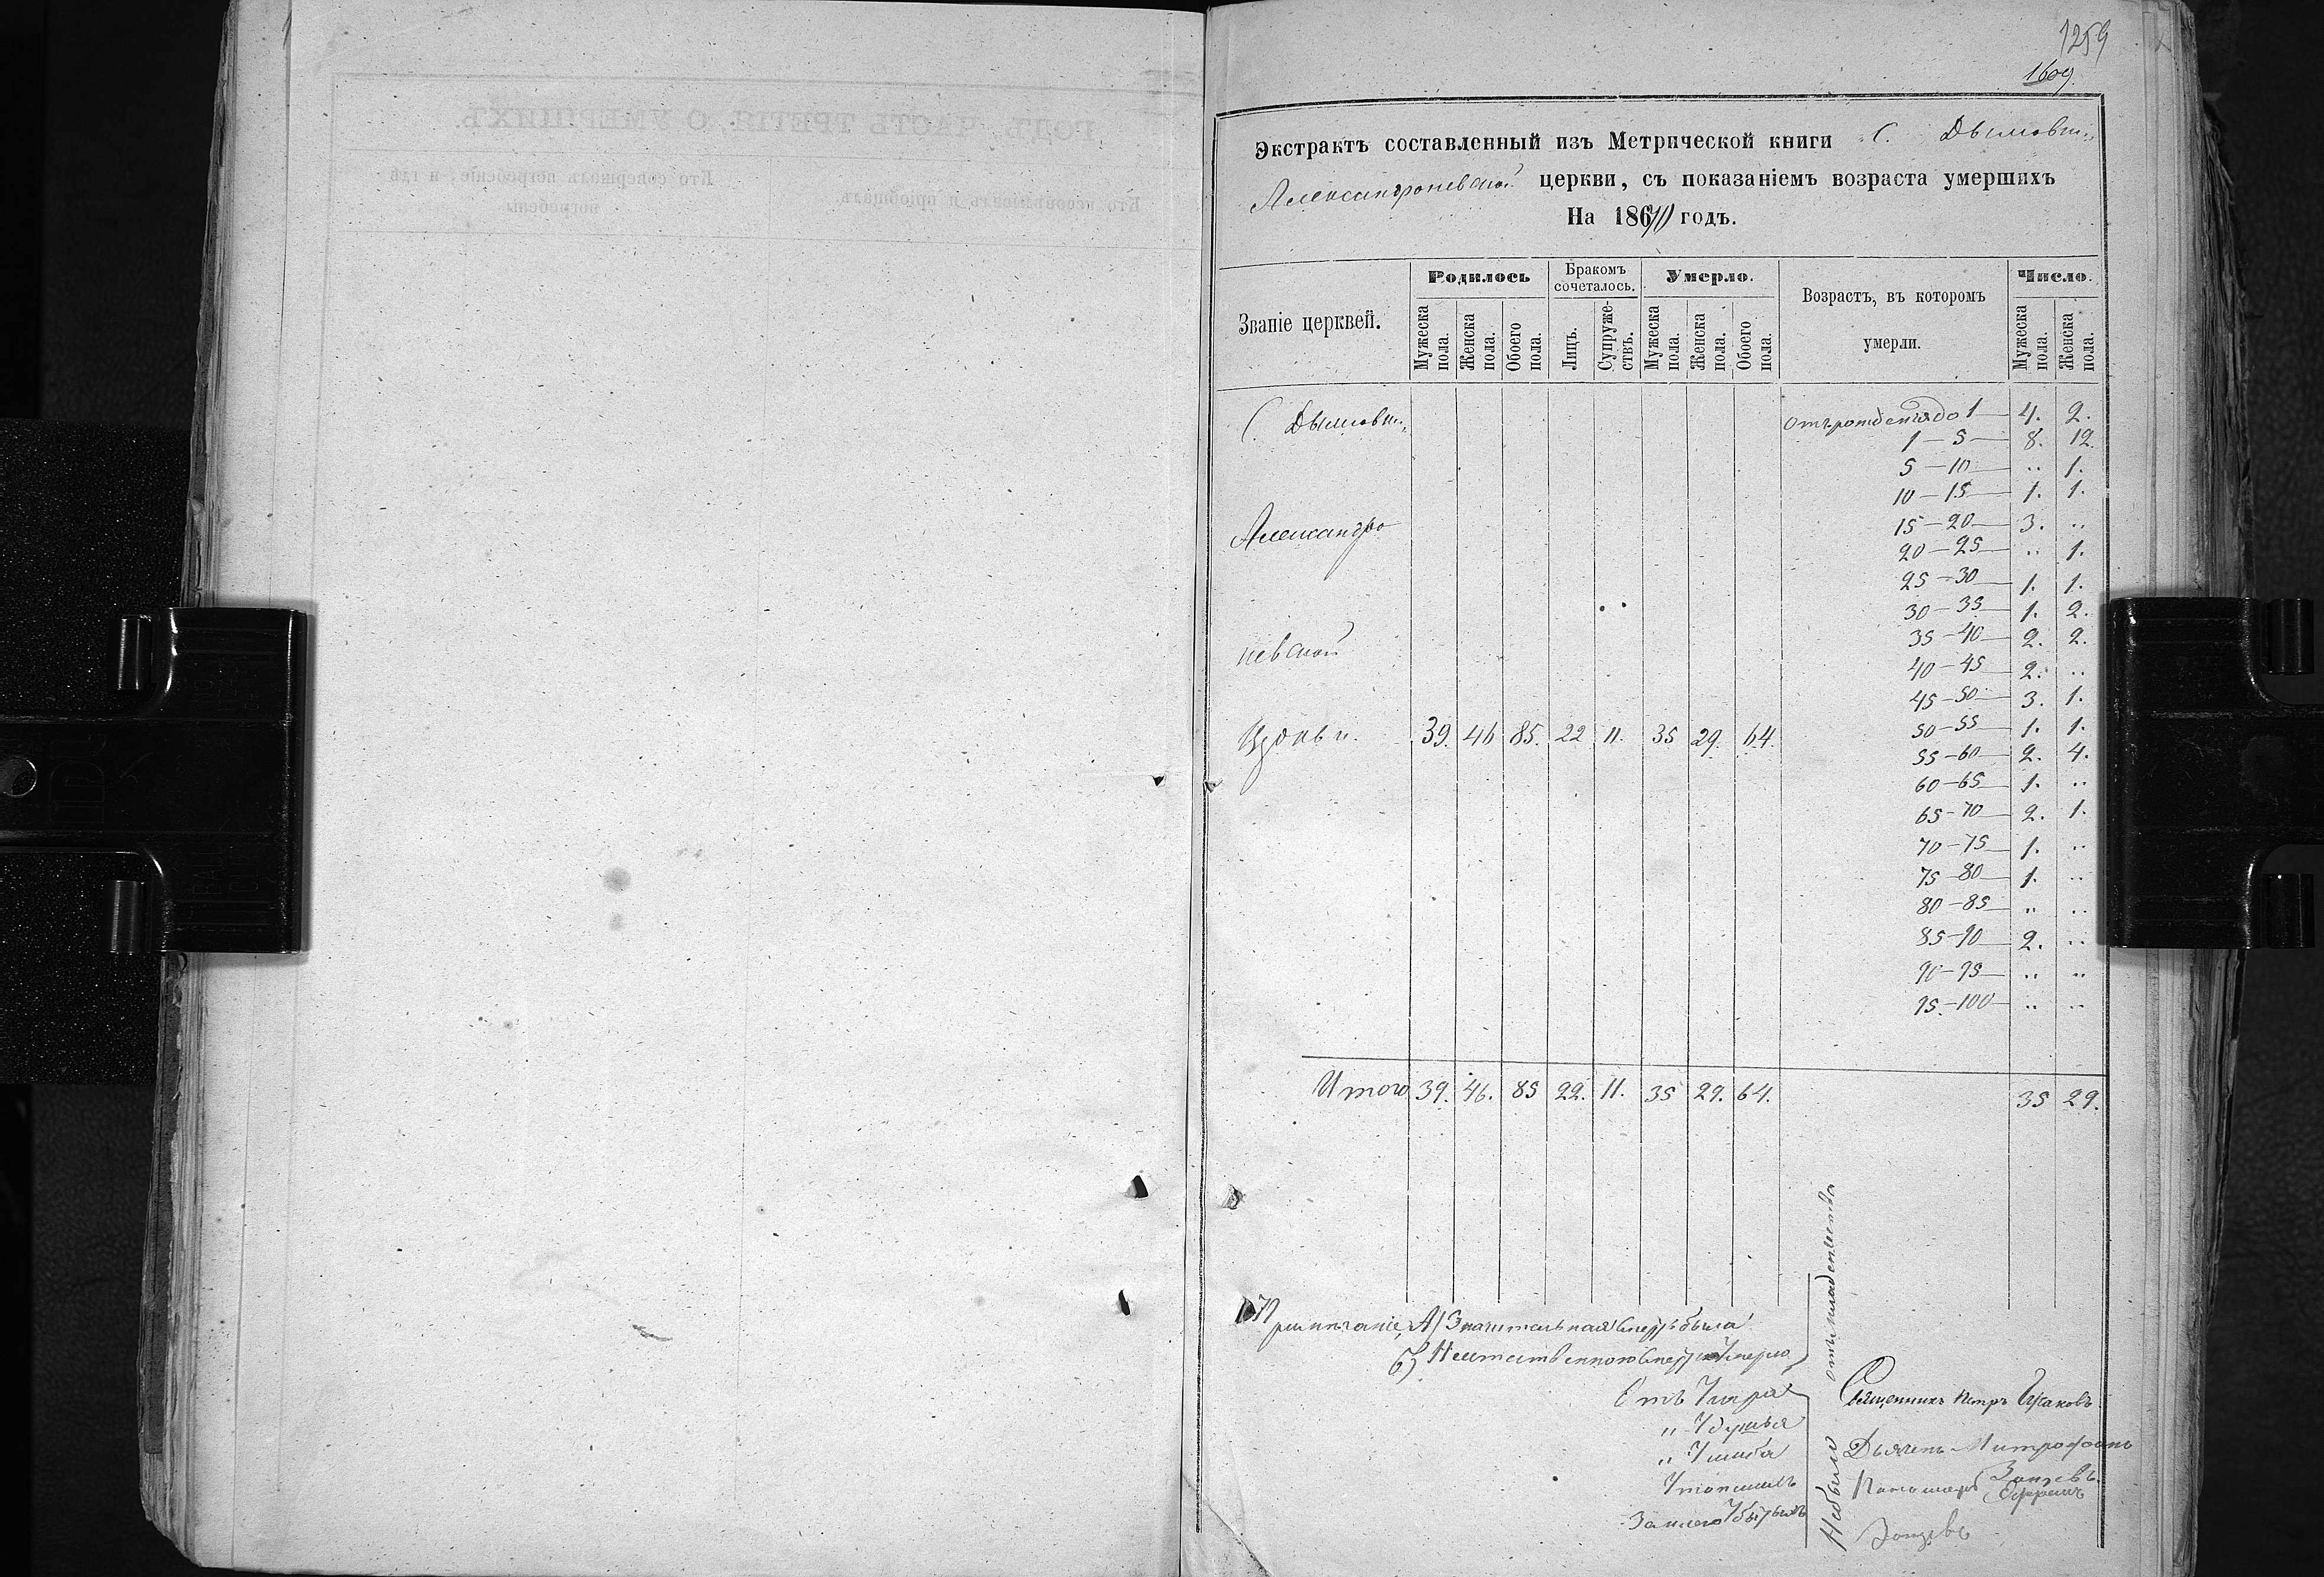 РОДЪ, ЧАСТЬ ТРЕТІЯ, О УМЕРШИХЪ.
Кто исповѣдывалъ и пріобщалъ
Кто совершалъ погребеніе, и гдѣ погребены
1259
1609.
Экстрактъ составленный изъ Метрической книги С.
Александроневской церкви, съ показаніемъ возраста умершихъ
На 1870 годъ.
Званіе церквей.
Родилось
Бракомъ сочеталось.
Умерло.
Возрастъ, въ которомъ умерли.
Число.
Мужеска пола.
Женска пола.
Обоего пола.
Лицъ.
Супружествъ.
Мужеска пола.
Женска пола.
Обоего пола.
Мужеска пола.
Женска пола.
С.
Александро
невской
Церкви. 39. 46 85. 22 11. 35 29. 64.
Отъ рожденія до 1 — 4. 2.
1 — 5 — 8. 12.
5 — 10 — „ 1.
10 — 15 — 1. 1.
15 — 20 — 3. „
20 — 25 — „ 1.
25 — 30 — 1. 1.
30 — 35 — 1. 2.
35 — 40 — 2. 2.
40 — 45 — 2. „
45 — 50 — 3. 1.
50 — 55 — 1. 1.
55 — 60 — 2. 4.
60 — 65 — 1. „
65 — 70 — 2. 1.
70 — 75 — 1. „
75 — 80 — 1. „
80 — 85 — „ „
85 — 90 — 2. „
90 — 95 — „ „
95 — 100 — „ „
Итого 39. 46. 85 22. 11. 35 29. 64. 35 29.
Примѣчаніе, А) Значительная смерть была
отъ младенчества
Б) Неестественною смертію умерло
Отъ Угара
„ Удушья
„ Ушиба
Утопшихъ
Замерзло
Не было
Священникъ Петръ
Дьячекъ Митрофанъ
Зайцевъ
Пономарь Ефремъ
Зайцевъ